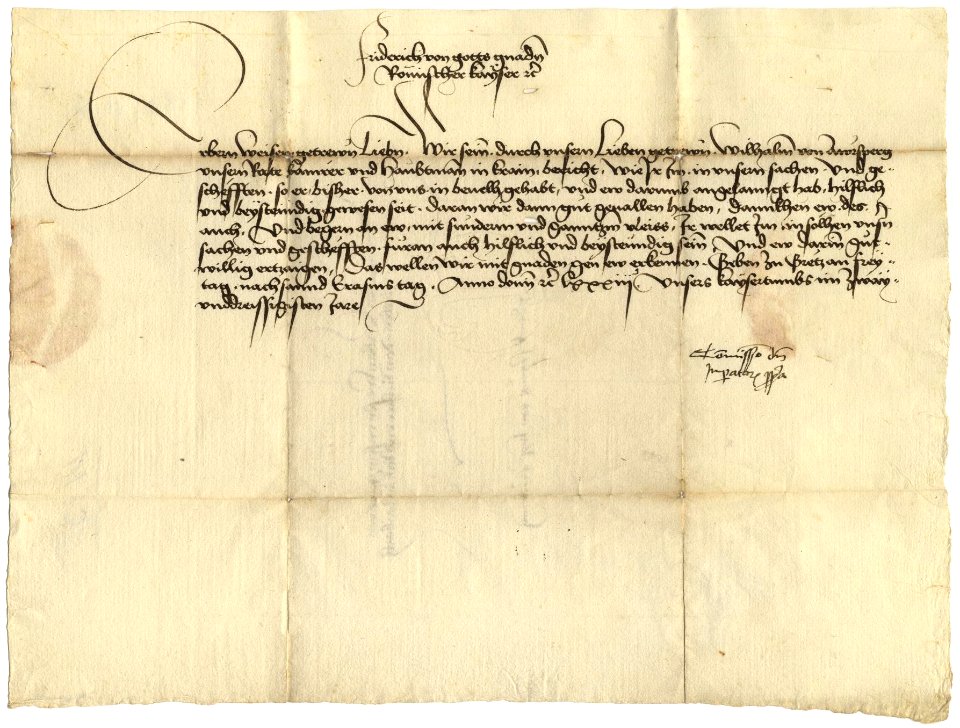 Friderich von gotts gnadn
Römischer kayser rc
Erbern weisen getrewn Liebn. Wir sein durch unsern Lieben getrewn Wilhalmn von Awrsperg
unsern Rate kamrer und Haubtman in krain bericht, wie Ir Im in unsern sachen und ge-
schefften so er bisher von uns in bevelh gehabt, und ew darumb angelanngt hab, hilflich
und beystenndig gewesen seit. daran wir dann gut gevallen haben, dannkhen ew des
auch. Und begern an ew, mit sunderm und ganntzm vleiss, Ir wellet Im in solhen unsn
sachen und geschefften furan auch hilflich und beystendig sein. Und ew darin gut-
willig ertzaigen, Das wellen wir mit gnaden gen ew erkennen. Geben zu Gretz an frey-
tag nach sannd Erasms tag. Anno domi rc lxxxiij. Unsers kaysertumbs im zway-
unddreissigisten Jare
Comissio dni
Impatoris ppa